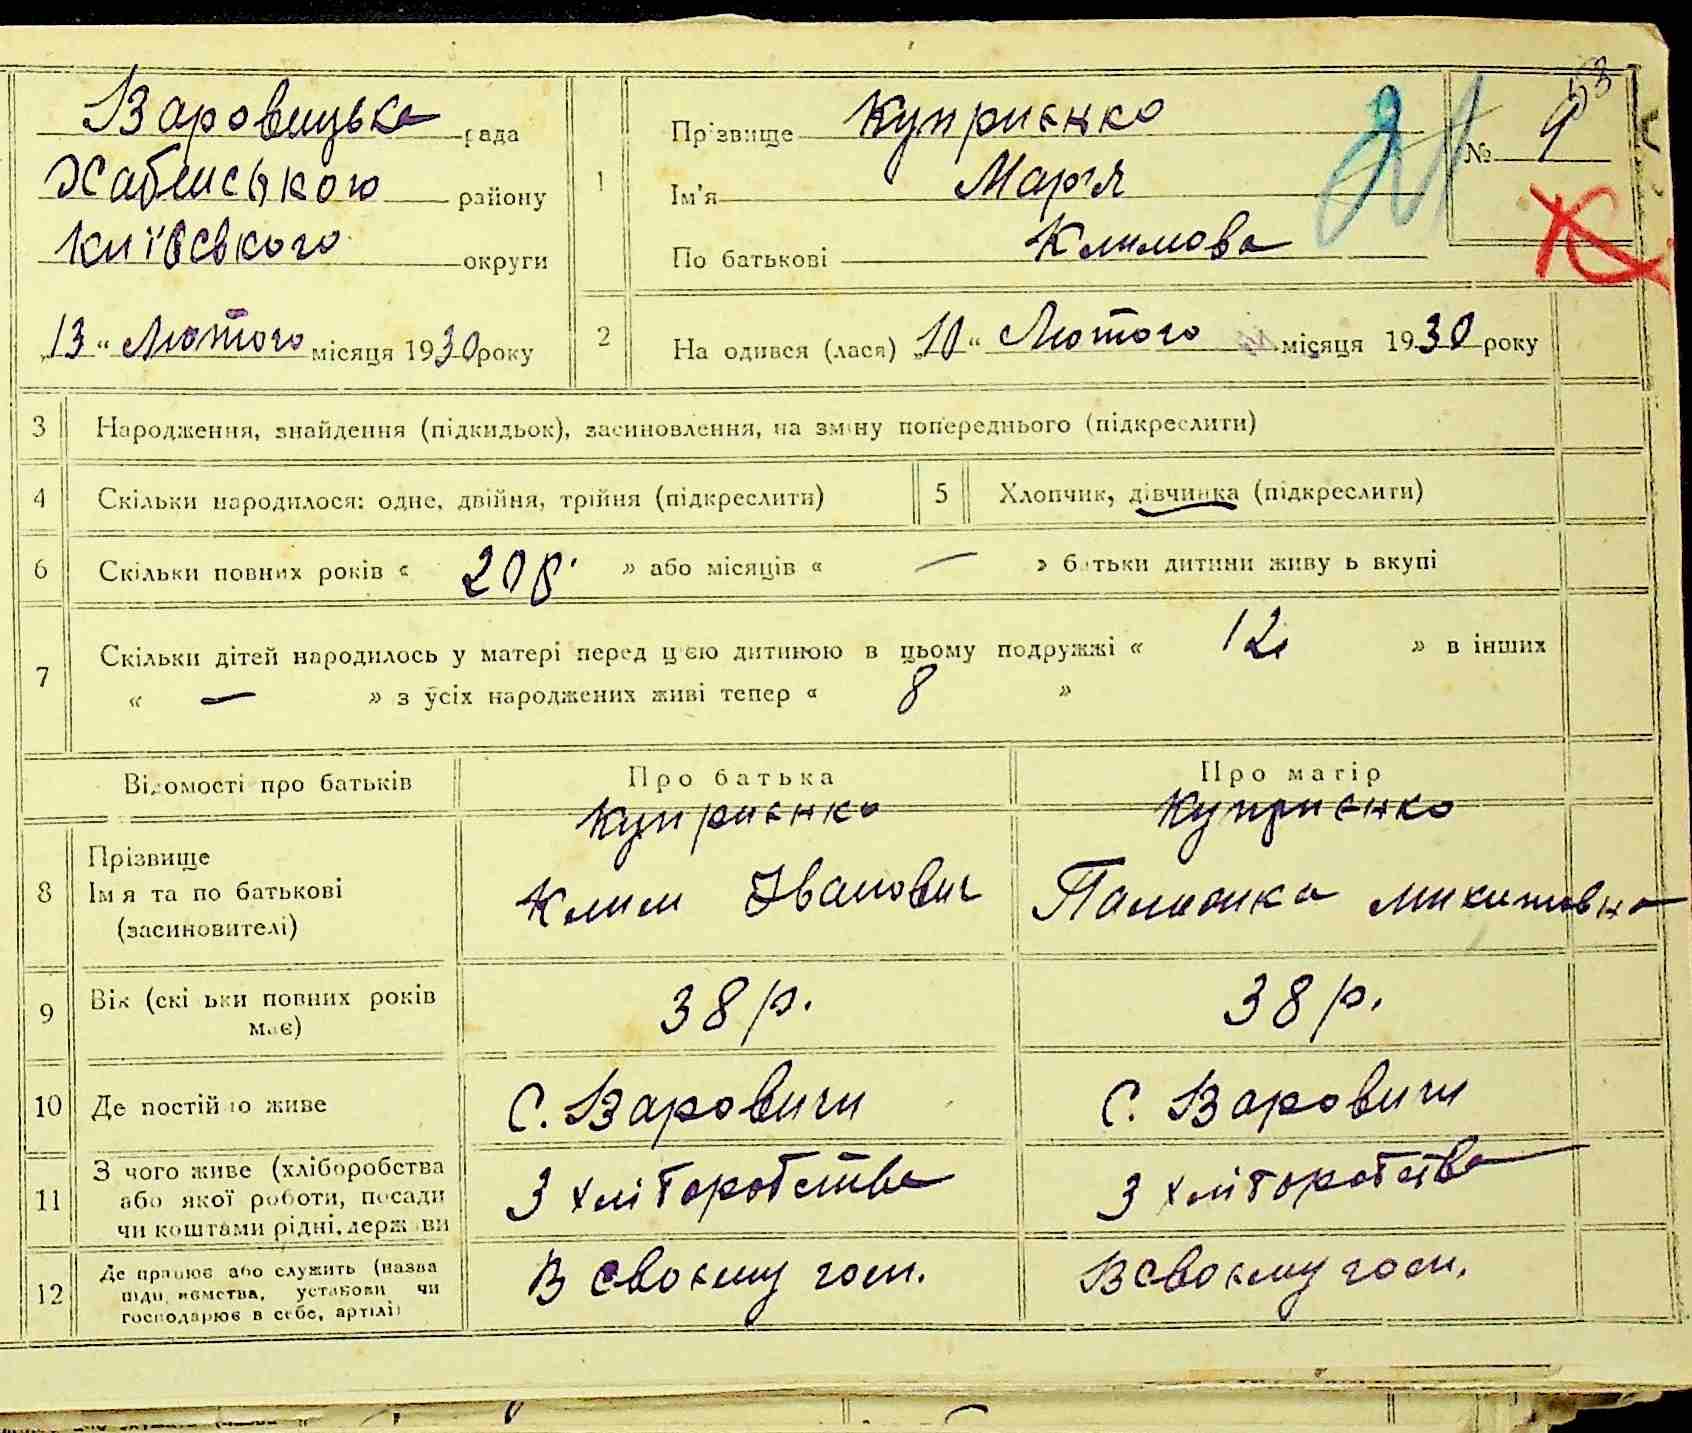 Варовицька рада
Хабенського району
Київського округи
„13“ Лютого місяця 1930 року
1
Прізвище Куприєнко
Ім'я Марія
По батькові Климова
№ 9
58
21
2
На одився (лася) „10“ Лютого місяця 1930 року
3 Народження, знайдення (підкидьок), засиновлення, на зміну попереднього (підкреслити)
4 Скільки народилося: одне, двійня, трійня (підкреслити) 5 Хлопчик, дівчинка (підкреслити)
6 Скільки повних років « 20 р. » або місяців « — » батьки дитини живу ь вкупі
7 Скільки дітей народилось у матері перед цією дитиною в цьому подружжі « 12 » в інших
« — » з усіх народжених живі тепер « 8 »
Відомості про батьків Про батька Про матір
Куприєнко Куприєнко
8 Прізвище
Ім я та по батькові Клим Іванович Палажка Микитовна
(засиновителі)
9 Вік (скі ьки повних років 38 р. 38 р.
має)
10 Де постійно живе С. Варовичи С. Варовичи
11 З чого живе (хліборобства
або якої роботи, посади З хліборобства З хліборобства
чи коштами рідні, держ ви
12 Де працює або служить (назва В своєму госп. В своєму госп.
підприємства, установи чи
господарює в себе, артілі)